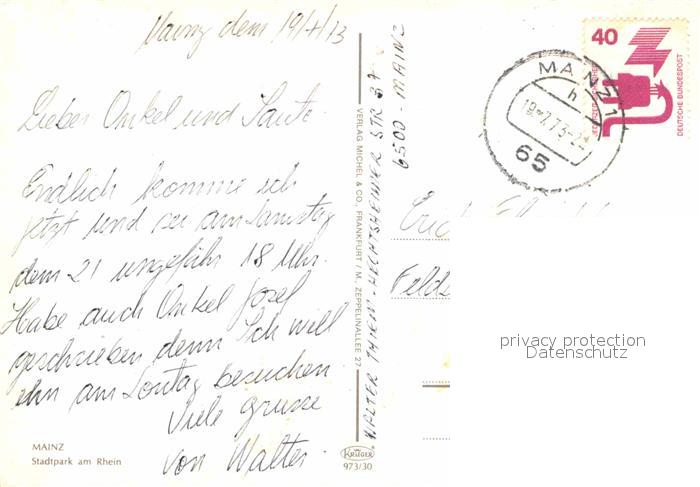 Mainz dem 19/7/73
Lieber Onkel und Tante
Endlich komme ich
jetzt und zw am Samstag
dem 21 ungefähr 18 Uhr.
Habe auch Onkel Josef
geschrieben denn Ich will
ehn am Sontag besuchen
Viele grusse
von Walter.
MAINZ
Stadtpark am Rhein
VERLAG MICHEL & CO., FRANKFURT / M, ZEPPELINALLEE 27
KRÜGER
973/30
WALTER THIEM - HECHTSHEIMER STR 37
6500 - MAINZ
40
DEUTSCHE BUNDESPOST
MAINZ 1
h
19.-7.73-21
65
Felds
privacy protection
Datenschutz